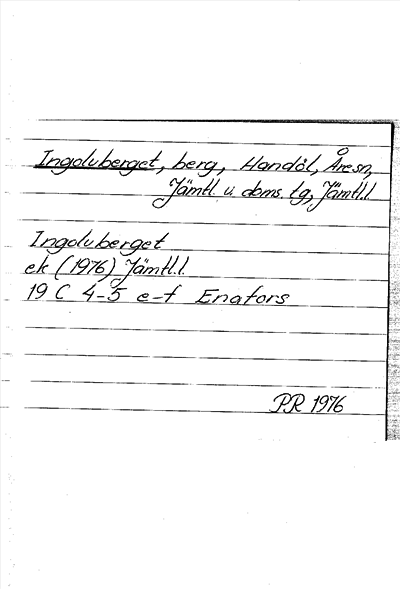 Ingolvberget, berg, Handöl, Åresn,
Jämtl. u. doms. tg, Jämtl.l.
Ingolvberget
ek (1976) Jämtl.l.
19 C 4-5 e-f Enafors
PR 1976